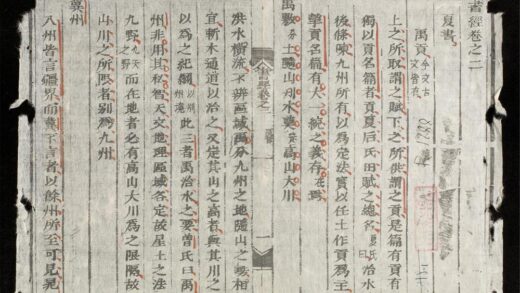 書經卷之二
夏書
禹貢 今文古文皆有
上之所取謂之賦下之所供謂之貢是篇有貢有
獨以貢名篇者貢夏后氏田賦之總名 治水
後條陳九州所有以為定法貢以任土作貢為主
舉貢名篇有大一統之義存焉
禹敷土隨山刊木奠高山大川
書經卷之二
洪水橫流不辨區域禹分九州之地隨山之勢相
宜斬木通道以治之又定其山之高者與其川之
以為之紀綱 此三者禹治水之要曾氏曰禹
州非用其私智天文地理區域各定故星土之法
九野 而在地者必有高山大川為之限隔故
山川之所限者別為九州
冀州
八州皆言疆界而冀不言者以餘州所至可見晁